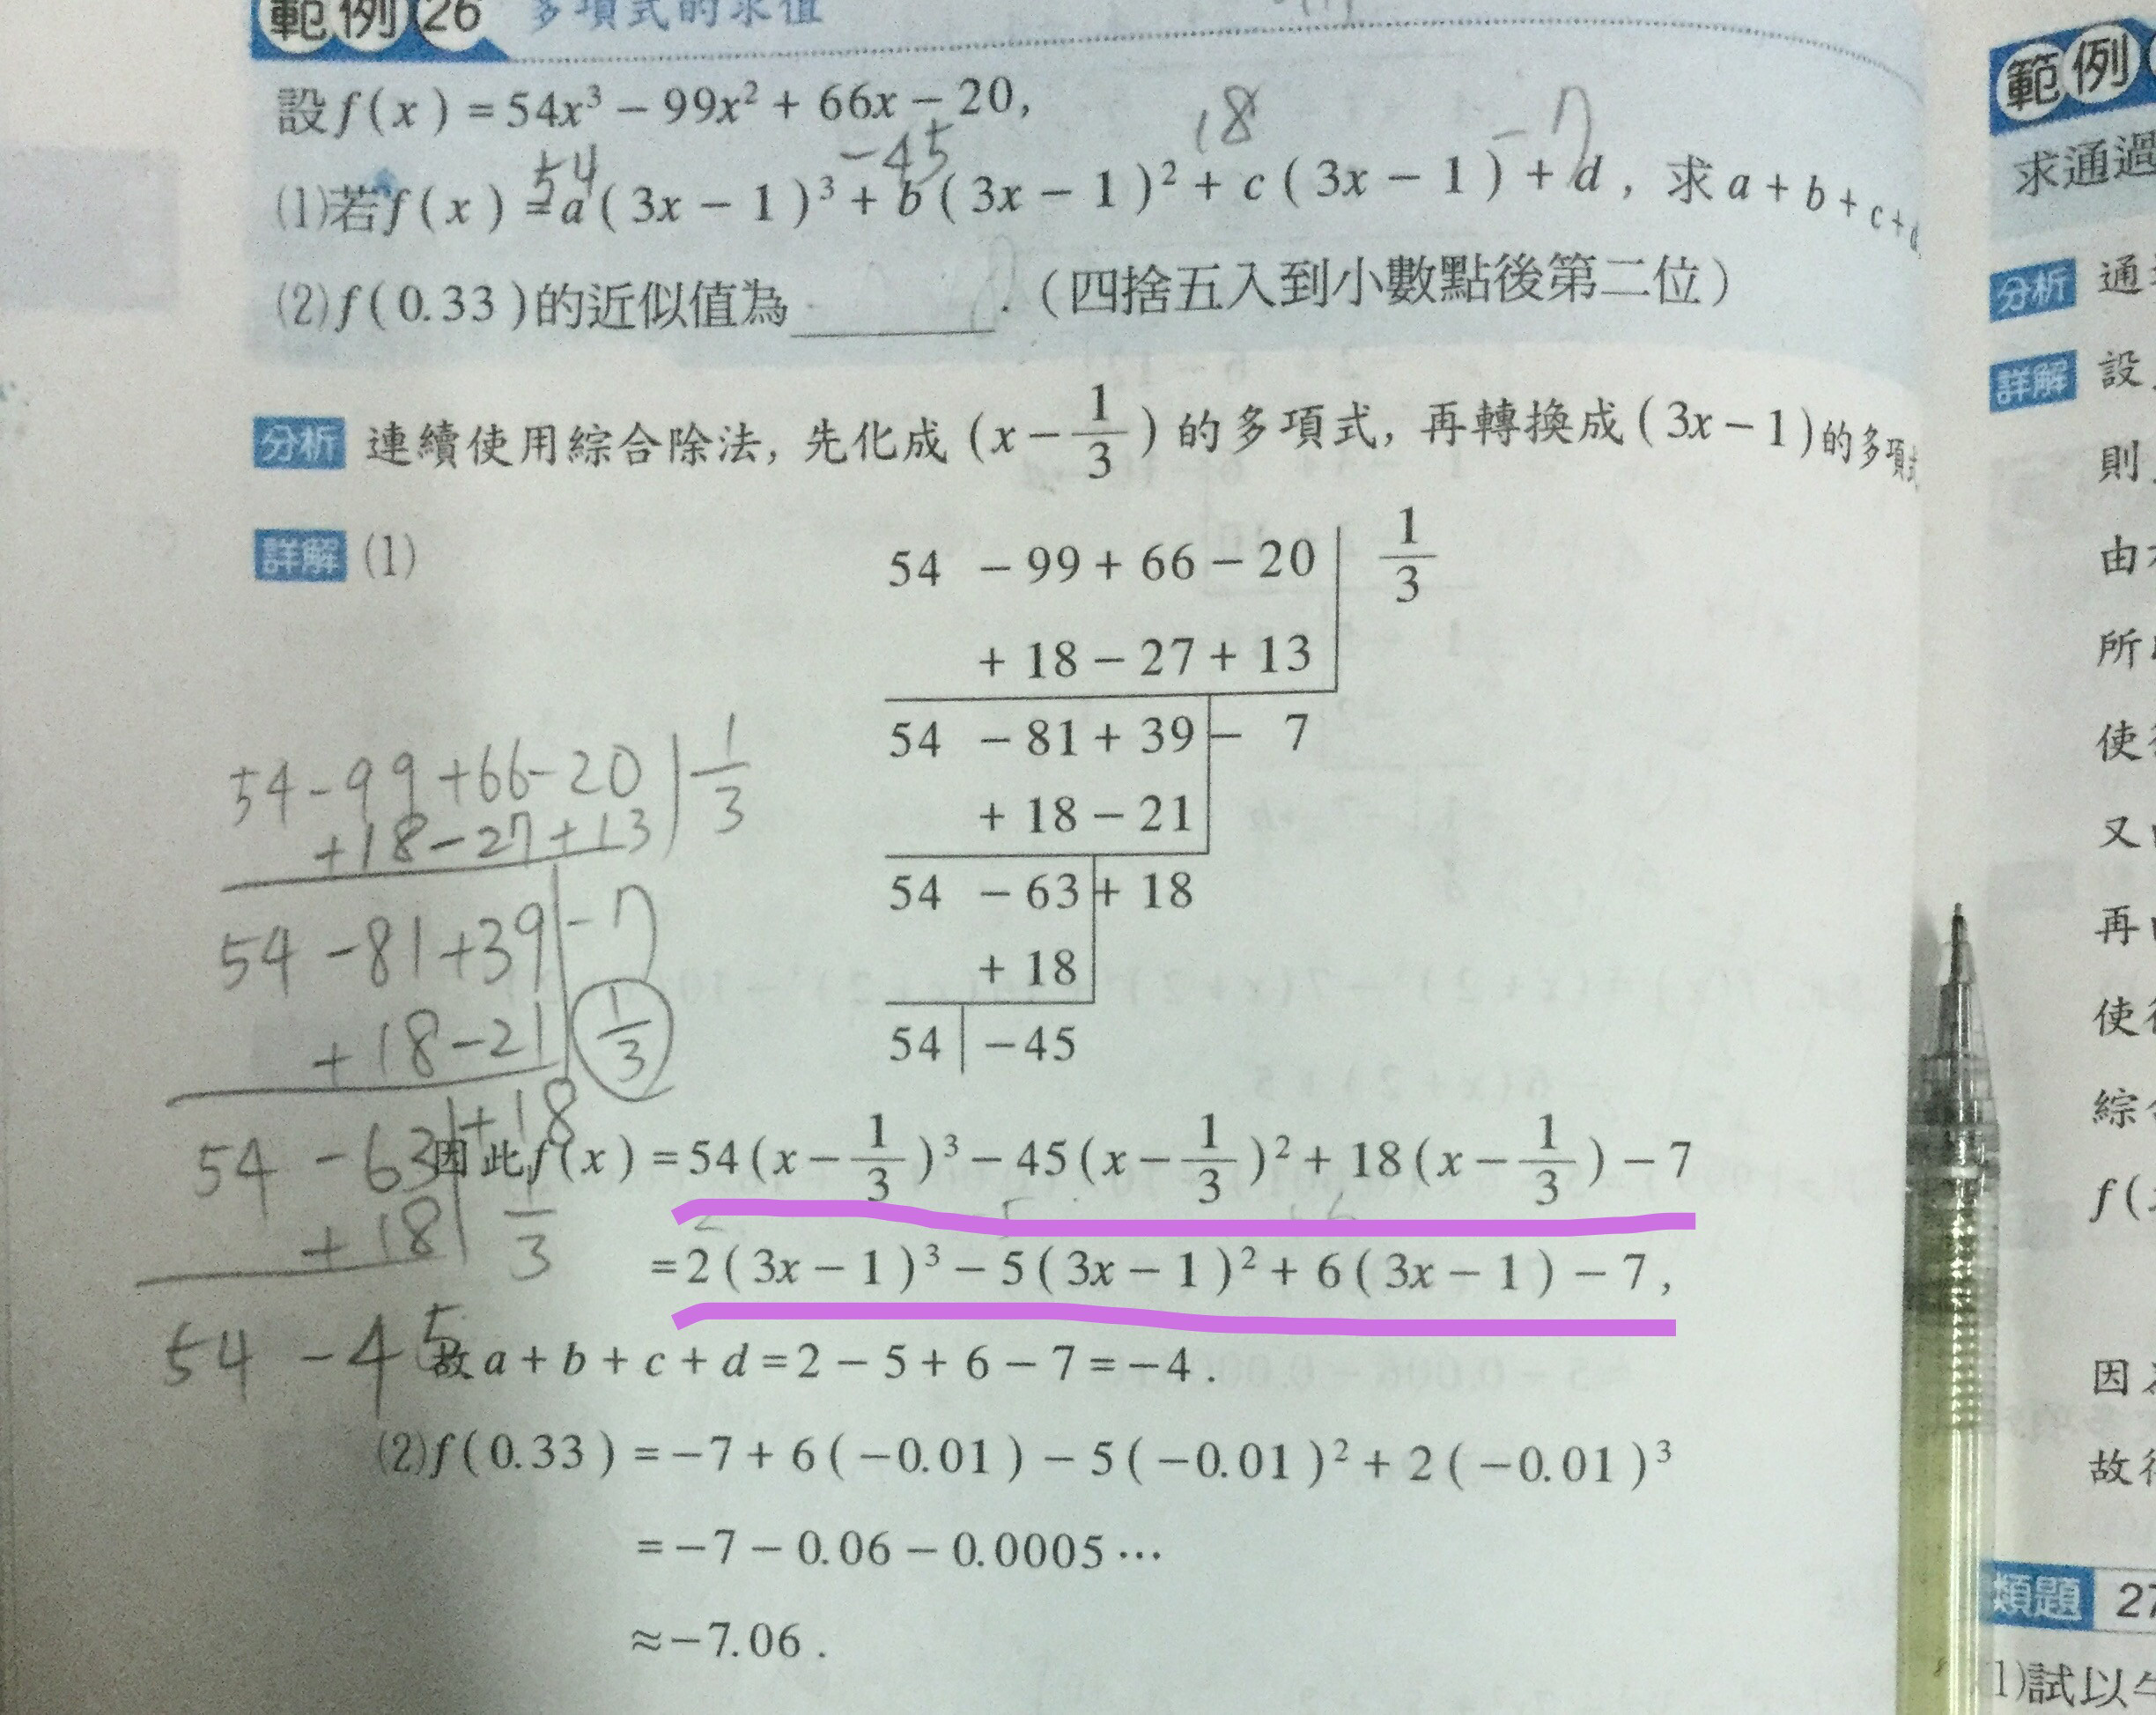 範例 26 多項式的求值
設f(x)=54x³-99x²+66x-20,
54 -45 18 -7
(1)若f(x)=a(3x-1)³+b(3x-1)²+c(3x-1)+d, 求a+b+c+
(2)f(0.33)的近似值為________.(四捨五入到小數點後第二位)
分析 連續使用綜合除法, 先化成(x-1/3)的多項式, 再轉換成(3x-1)的多項
詳解 (1)
54 -99+66-20 | 1/3
+18-27+13
54 -81+39 | -7
+18-21
54 -63 | +18
+18
54 | -45
54-99+66-20 | 1/3
+18-27+13
54-81+39 | -7
+18-21 | 1/3
54-63 | +18
+18 | 1/3
54 -45
因此f(x)=54(x-1/3)³-45(x-1/3)²+18(x-1/3)-7
=2(3x-1)³-5(3x-1)²+6(3x-1)-7,
故a+b+c+d=2-5+6-7=-4.
(2)f(0.33)=-7+6(-0.01)-5(-0.01)²+2(-0.01)³
=-7-0.06-0.0005⋯
≈-7.06.
範例
求通過
分析 通
詳解 設
則
由
所
使
又
再
使
綜
f(
因
故
類題 27
(1)試以